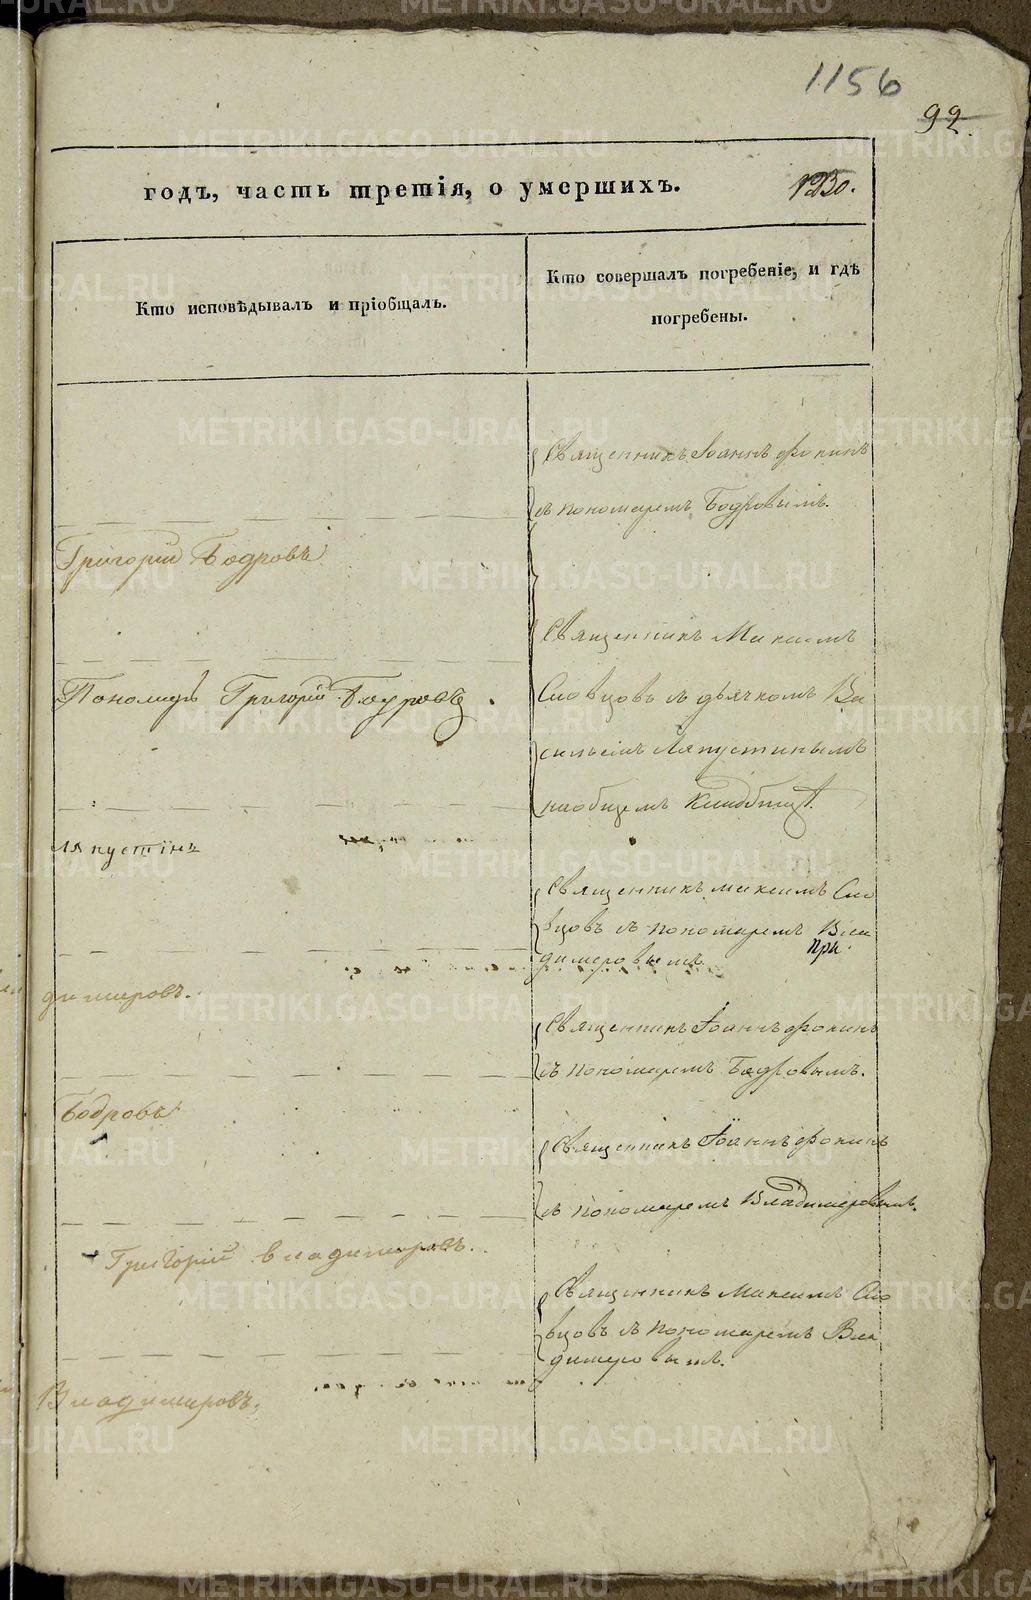 1156
92.
годъ, часть третія, о умершихъ.
Кто исповѣдывалъ и пріобщалъ.
Кто совершалъ погребеніе, и гдѣ
погребены.
Священникъ Іоаннъ Фокинъ
съ пономаремъ Бодровымъ.
Григорій Бодровъ
Священникъ Максимъ
Словцовъ съ дьячкомъ Ва
Пономарь Григорій Бодровъ.
сильемъ Ляпустинымъ
на общемъ
Ляпустинъ
Священникъ Максимъ Сло
вцовъ съ пономаремъ Вла
при
димеровымъ
димировъ.
Священникъ Іоаннъ Фокинъ
съ пономаремъ Бодровымъ.
Бодровъ
Священникъ Іоаннъ Фокинъ
съ пономаремъ Владимеровымъ.
Григорій Владимировъ.
Священникъ Максимъ Сло
вцовъ съ пономаремъ Вла
димеровымъ.
Владимировъ.
METRIKI.GASO-URAL.RU